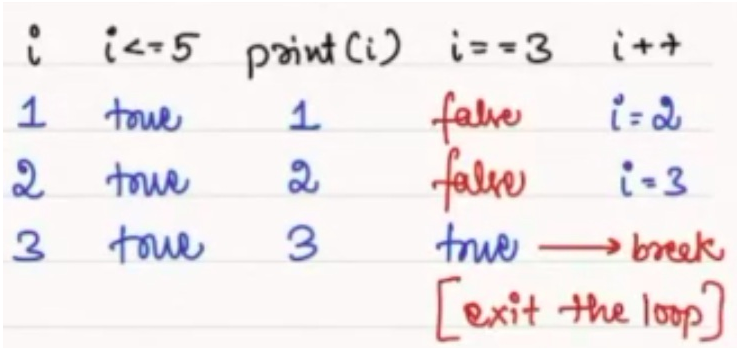 i i<=5 print(i) i==3 i++
1 true 1 false i=2
2 true 2 false i=3
3 true 3 true → break
[exit the loop]